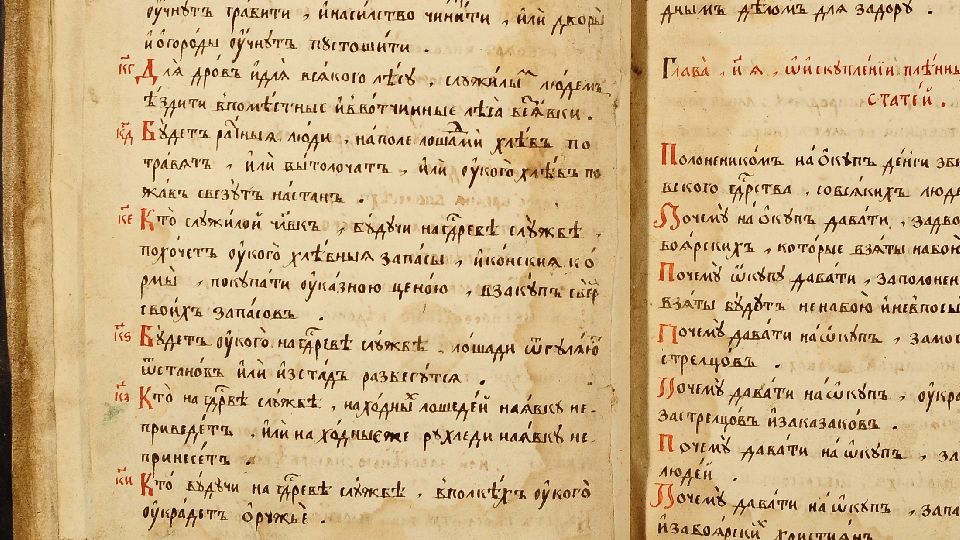 ѹчнутъ грабити , и насилство чинити , или дворы
и огороды ѹчнутъ пустошити .
кг Для дровъ и для всякого лѣсу , служилымъ людемъ
ѣздити в поместные и в вотчинные лѣса без явки .
кд Будетъ ратныя люди , на поле лошадми хлѣбъ по
травятъ , или вытолочатъ , или ѹ кого хлѣбъ по
жавъ свезутъ на станъ .
ке Кто служилой чл҃вкъ , будучи на гд҃рвѣ службѣ ,
похочетъ ѹ кого хлѣбныя запасы , и конския ко
рмы , покупати ѹказною ценою , в закупъ сверхъ
своихъ запасовъ .
кѕ Будетъ ѹ кого на гд҃рвѣ службѣ , лошади ѿ гуляютъ
ѿ становъ или из стадъ разбегутся .
кз Кто на гд҃рвѣ службѣ , находныхъ лошедей на явку не-
приведетъ . или находные же рухледи на явку не-
принесетъ .
ки Кто будучи на гд҃рвѣ службѣ , в полкѣхъ ѹ кого
ѹкрадетъ оружье .
днымъ дѣломъ для задору .
Глава , и҃ я , ѡ искуплении плѣнны
статей .
Полонеником на ѡкупъ денги збе
вского гд҃рства , со всякихъ люде
Почему на ѡкупъ давати , за дво
боярскихъ , которые взяты на бою
Почему ѿкупу давати , за полонен
взяты будутъ не на бою и не в посы
Почему давати на ѡкупъ , за мос
стрелцовъ .
Почему давати на ѡкупъ , ѹкра
за стрелцовъ и за казаковъ .
Почему давати на ѡкупъ , за
людей .
Почему давати на ѡкупъ , за па
и за боярскихъ християнъ